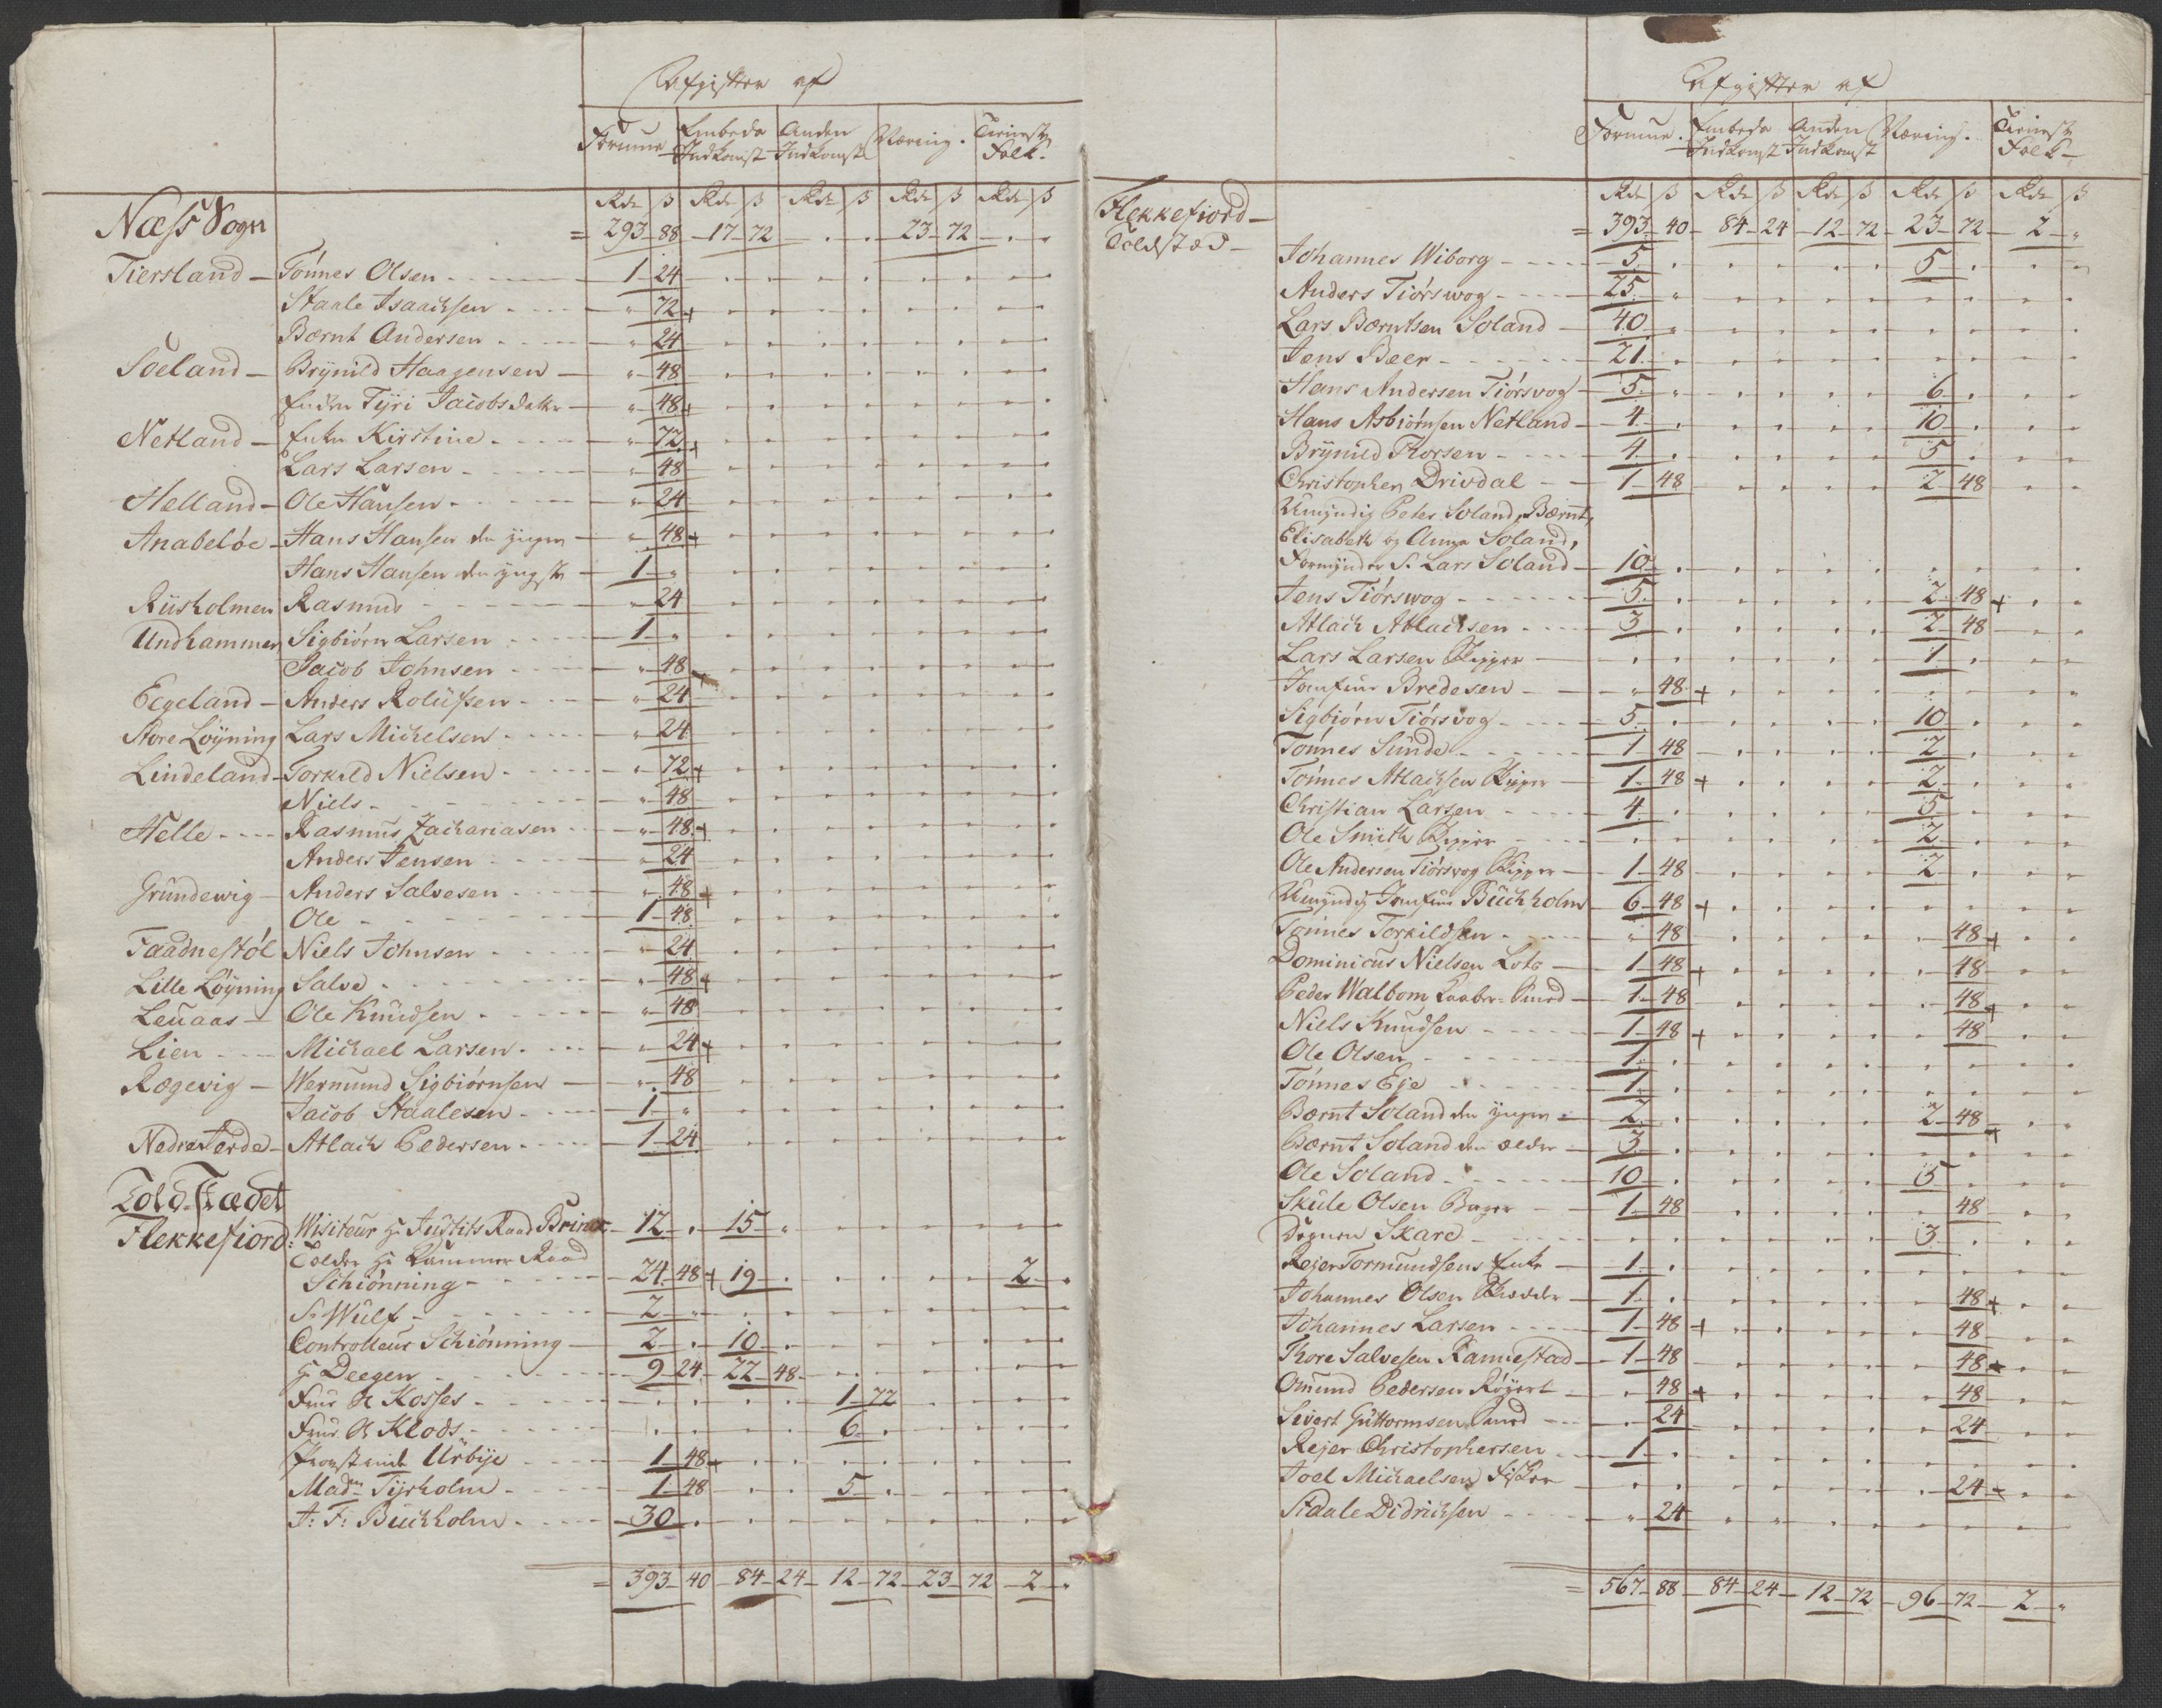 Afgifter af
Formue Embeds Indkomst Anden Indkomst Næring. Tieneste Folk.
Rdr ß Rdr ß Rdr ß Rdr ß Rdr ß
Næss Sogn = 293 88 17 72 . . 23 72 . .
Tiersland Tönnes Olsen 1 24
Staale Isaachsen " 72 +
Bærnt Andersen " 24
Soeland Brynild Haagensen " 48
Enken Tyri Jacobsdatter " 48 +
Netland Enken Kirstine " 72 +
Lars Larsen " 48
Helland Ole Hansen " 24
Anabelöe Hans Hansen den yngre " 48 +
Hans Hansen den yngste 1 "
Riisholmen Rasmus " 24
Undhammer Sigbiörn Larsen 1 "
Jacob Johnsen " 48 +
Eegeland Anders Rolufsen " 24
Store Löyning Lars Michelsen " 24
Lindeland Torkild Nielsen " 72 +
Niels " 48
Helle Rasmus Zachariasen " 48 +
Anders Jensen " 24
Grundewig Anders Salvesen " 48 +
Ole 1 48
Faadnestöl Niels Johnsen " 24
Lille Löyning Salve " 48 +
Leuaas Ole Knudsen " 48
Lien Michael Larsen " 24 +
Rægevig Wermund Sigbiörnsen " 48
Jacob Staalesen 1 "
Nedre Jerde Atlach Pedersen 1 24
Told-Stædet
Flekkefiord: Visiteur Hr Justits Raad Brinck 12 . 15 "
Tolder Hr Kammer Raad
Schiönning 24 48 + 19 . . . . . 2 "
Sr Wulf 2 "
Controlleur Schiönning 2 . 10 .
Hr Deegen 9 24 22 48
Frue Kosses 1 72
Frue Klods 6 .
Provstinde Urbye 1 48 +
Madm Tyrholm 1 48 5 .
J: F: Buchholm 30 .
= 393 40 84 24 12 72 23 72 2 "
Afgifter af
Formue. Embeds Indkomst Anden Indkomst Næring. Tieneste Folk
Rdr ß Rdr ß Rdr ß Rdr ß Rdr ß
Flekkefiord = 393 40 84 24 12 72 23 72 2 "
Toldstæd
Johannes Wiborg 5 . 5 .
Anders Tiörswog 25 "
Lars Bærntsen Soland 40 "
Jens Beer 21 .
Hans Andersen Tiörsvog 5 " 6 .
Hans Asbiörnsen Netland 4 . 10 .
Brynild Thorsen 4 . 5 .
Christopher Drivdal 1 48 2 48
Umyndig Peter Soland, Bærnt,
Elisabeth og Anna Soland,
Formynder Sr Lars Soland 10 .
Jens Tiörswog 5 . 2 48 +
Atlach Atlachsen 3 . 2 48
Lars Larsen Skipper . . 1 .
Jomfrue Bredesen " 48 +
Sigbiörn Tiörsvog 5 . 10 .
Tönnes Sunde 1 48 2 .
Tönnes Atlachsen Skipper 1 48 + 2 .
Christian Larsen 4 . 5 .
Ole Smith Skipper . . 2 .
Ole Andersen Tiörsvog Skipper 1 48 2 .
Umyndig Jomfrue Buchholm 6 48 +
Tönnes Torkildsen " 48 . 48 +
Dominicus Nielsen Lots 1 48 + . 48
Peder Walbom Kaaber-Smed 1 48 . 48 +
Niels Knudsen 1 48 + . 48
Ole Olsen 1 .
Tönnes Eje 1 .
Bærnt Soland den yngre 2 . 2 48 +
Bærnt Soland den ælder 3 .
Ole Soland 10 . 5 .
Skule Olsen Bager 1 48 . 48
Degnen Skare . . 3 .
Rejer Tormundsens Enke 1 .
Johannes Olsen Skræder 1 . . 48 +
Johannes Larsen 1 48 + . 48
Thore Salvesen Rannestad 1 48 . 48 +
Omund Pedersen Röyert . 48 + . 48
Sivert Guttormsen Smed . 24 . 24
Rejer Christophersen 1 .
Joel Michaelsen Fisker . . . 24 +
Staale Didrichsen " 24
= 567 88 84 24 12 72 96 72 2 "